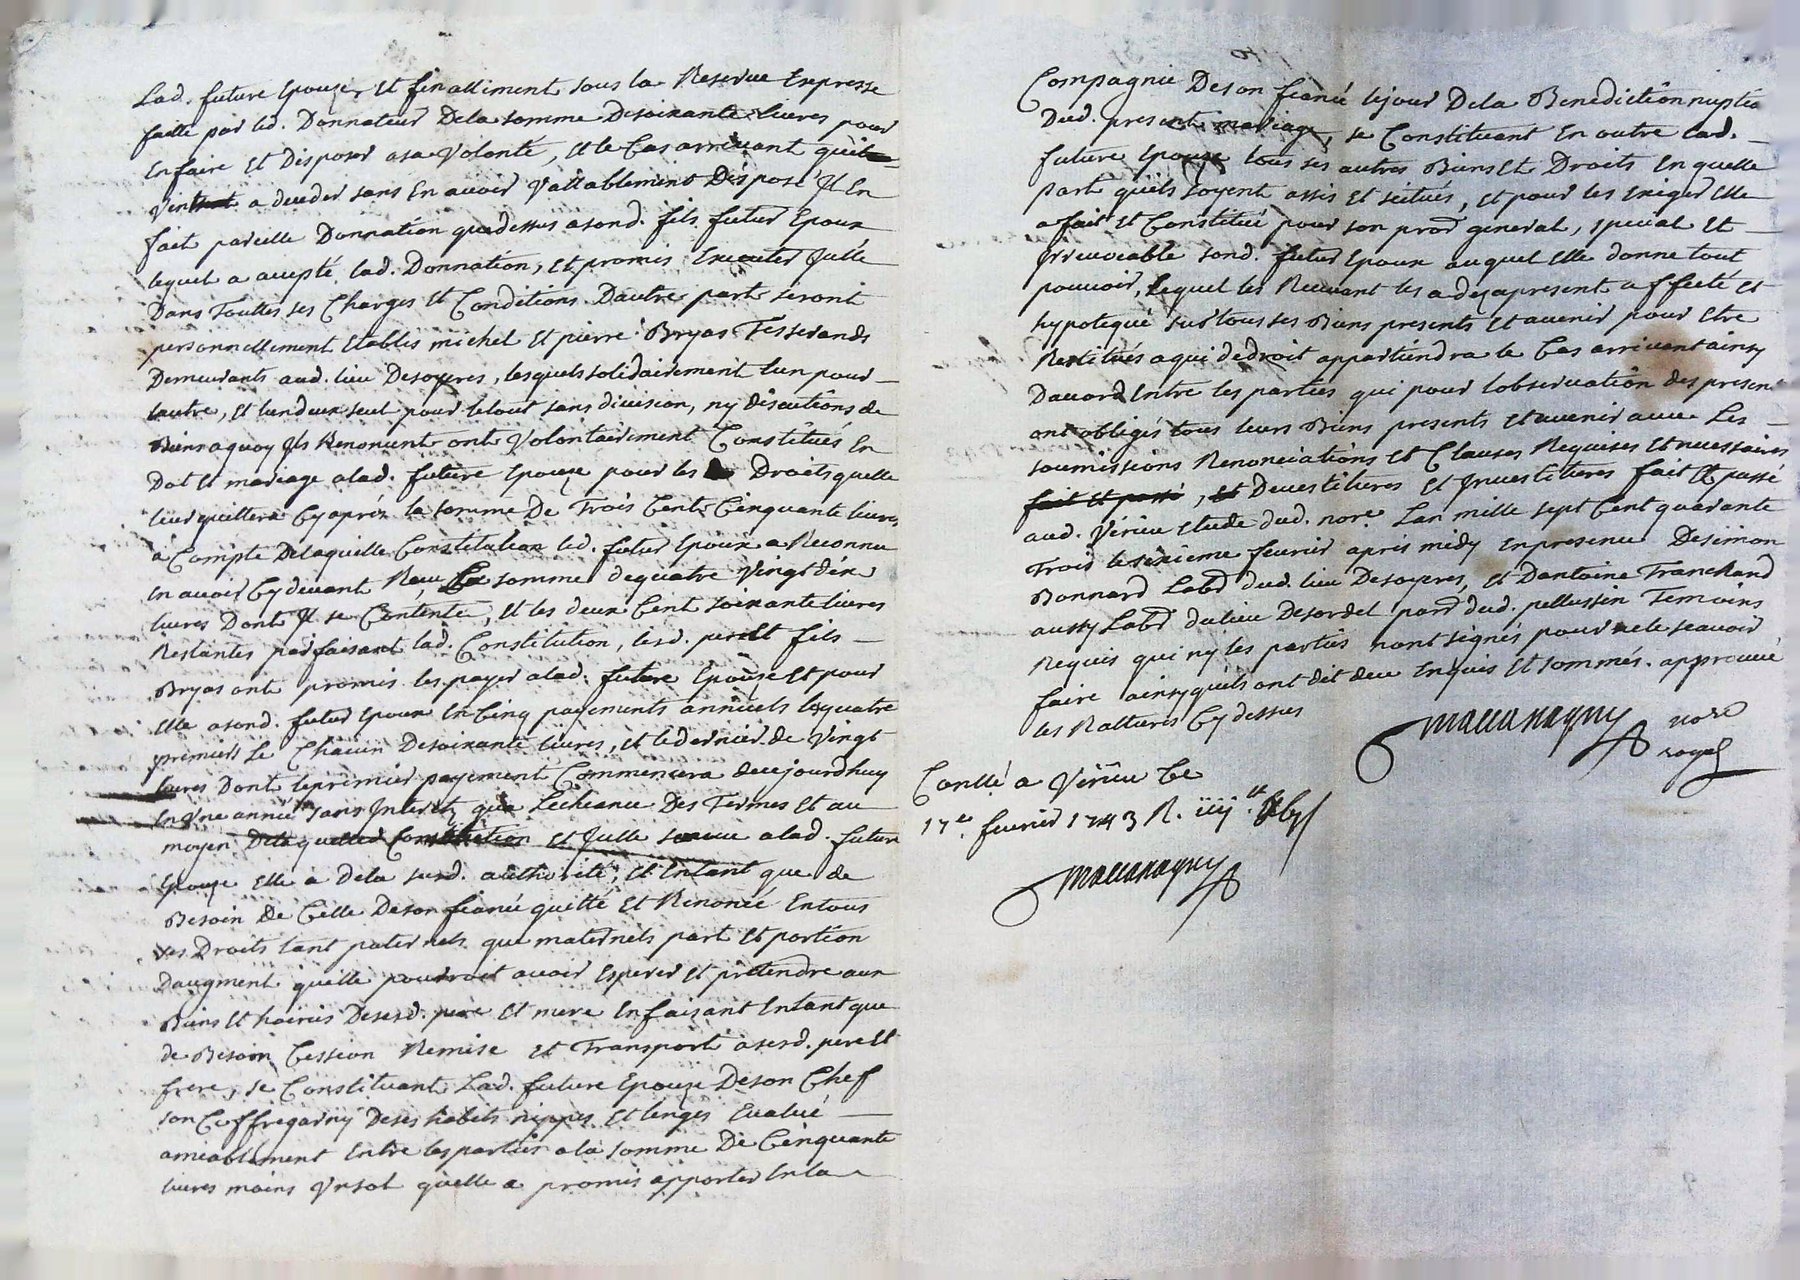 Lad. future Epouze, Et finallement sous la Reserve Expresse
faitte par led. Donnateur De la somme De soixante livres pour
En faire Et Disposer a sa Volonté, Et le Cas arrivant quil
Vint a deceder sans En avoir Vallablement Disposé Il En
fait pareille Donnation que dessus a sond. fils futur Epoux
lequel a accepté lad. Donnation, Et promis Executer Icelle
Dans Touttes ses Charges Et Conditions. Dautre part seront
personnellement Etablis michel Et pierre Bryas Tisserands
Demeurants aud. lieu De soyeres, lesquels solidairement lun pour
lautre, Et lun deux seul pour le tout sans division, ny discutions de
Biens a quoy Ils Renoncent ont Volontairement Constitués En
Dot Et mariage a lad. future Epouze pour les Droits quelle
leur quittera Cy aprés la somme De Trois Cent Cinquante livres
a Compte De laquelle Constitution led. futur Epoux a Reconnu
En avoir Cy devant Reçu La somme de quatre Vingt dix
livres Dont Il se Contente, Et les deux Cent soixante livres
Restantes parfaisant lad. Constitution, lesd. pere Et fils
Bryas ont promis les payer a lad. future Epouze Et pour
Elle a sond. futur Epoux En Cinq payements annuels les quatre
premiers De Chacun De soixante livres, Et le dernier de Vingt
livres Dont le premier payement Commencera de cejourdhuy
En Une année sans Interets qua Lecheance Des Termes Et au
moyen De laquelle Constitution Et Icelle a lad. future
Epouze Elle a De la susd. authorité, Et Entant que de
Besoin de Celle De son fiancé quitté Et Renoncé En tous
ses Droits tant paternels que maternels part Et portion
Daugment quelle pourroit avoir Esperer Et prétendre aux
Biens Et hoiries De sesd. pere Et mere En faisant Entant que
de Besoin Cession Remise Et Transport a sesd. pere Et
frere, se Constituant Lad. future Epouze De son Chef
son Coffre garny De ses habits nippes Et linges Evalué
amiablement Entre les parties a la somme De Cinquante
livres moins Un sol quelle a promis apporter En la
Compagnie De son fiancé le jour De la Benediction nuptia
Dud. present mariage, se Constituant En outre lad.
future Epouze tous ses autres Biens Et Droits En quelle
part quils soyent assis Et scitués, Et pour les Exiger Elle
a fait Et Constitué pour son procr general, special Et
Irrevocable sond. futur Epoux auquel Elle donne tout
pouvoir, Lequel les Recevant les a des a present affecté Et
hypotequé sur tous ses Biens presents Et avenir pour Etre
Restitués a qui de droit appartiendra le Cas arrivant ainsy
Daccord Entre les parties qui pour lobservation des present
ont obligés tous leurs Biens presents Et avenir avec Les
soumissions Renonciations Et Clauses Requises Et necessaires
fait Et passé, Et Devestitures Et Investitures fait Et passé
aud. Verieu Etude dud. nore. Lan mille sept Cent quarante
Trois le seixieme fevrier aprés midy En presence De simon
Bonnard Labr dud. lieu De soyeres, Et Dantoine Tranchand
aussy Labr du lieu De sordet parr dud. pellussin Temoins
Requis qui ny les parties nont signés pour ne le scavoir
faire ainsy quils ont dit de ce Enquis Et sommés. approuvé
les Ratturés Cy dessus
nore
royal
Conllé a Verieu Ce
17e. fevrier 1743 R. iiij